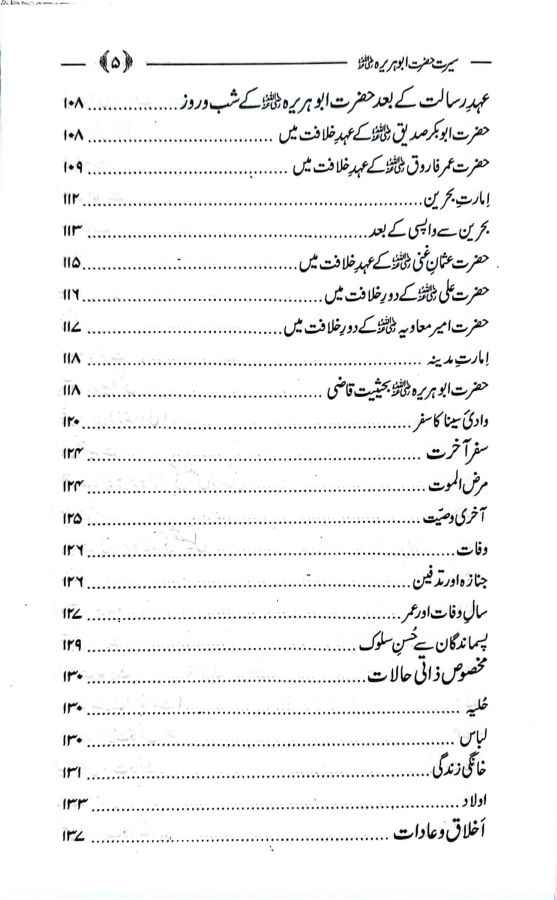 سیرت حضرت ابوہریرہ ؓ ﴿۵﴾
عہدِ رسالت کے بعد حضرت ابوہریرہ ؓ کے شب و روز .................. ۱۰۸
حضرت ابوبکر صدیق ؓ کے عہدِ خلافت میں .................. ۱۰۸
حضرت عمر فاروق ؓ کے عہدِ خلافت میں .................. ۱۰۹
اِمارتِ بحرین .................. ۱۱۲
بحرین سے واپسی کے بعد .................. ۱۱۳
حضرت عثمانِ غنی ؓ کے عہدِ خلافت میں .................. ۱۱۵
حضرت علی ؓ کے دورِ خلافت میں .................. ۱۱۶
حضرت امیر معاویہ ؓ کے دورِ خلافت میں .................. ۱۱۷
اِمارتِ مدینہ .................. ۱۱۸
حضرت ابوہریرہ ؓ بحیثیت قاضی .................. ۱۱۸
وادیٔ سینا کا سفر .................. ۱۲۰
سفرِ آخرت .................. ۱۲۴
مرض الموت .................. ۱۲۴
آخری وصیّت .................. ۱۲۵
وفات .................. ۱۲۶
جنازہ اور تدفین .................. ۱۲۶
سالِ وفات اور عمر .................. ۱۲۷
پسماندگان سے حُسنِ سلوک .................. ۱۲۹
مخصوص ذاتی حالات .................. ۱۳۰
حُلیہ .................. ۱۳۰
لباس .................. ۱۳۰
خانگی زندگی .................. ۱۳۱
اولاد .................. ۱۳۳
اَخلاق و عادات .................. ۱۳۷